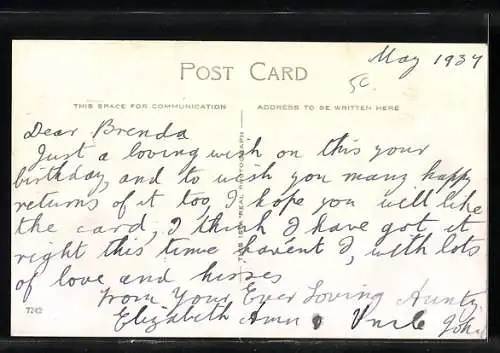 May 1937
POST CARD
50.
THIS SPACE FOR COMMUNICATION
ADDRESS TO BE WRITTEN HERE
Dear Brenda
Just a loving wish on this your
birthday, and to wish you many happy
returns of it too, I hope you will like
the card, I think I have got it
right this time havent I, with lots
of love and kisses
From Your Ever Loving Aunty
Elizabeth Ann & Uncle John
THIS IS A REAL PHOTOGRAPH
7242